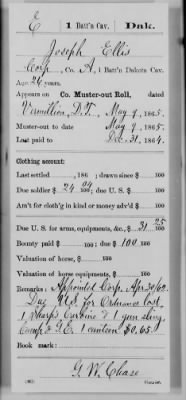 E | 1 Batt'n Cav. | Dak.
Joseph Ellis
Corp., Co. A, 1 Batt'n Dakota Cav.
Age 26 years.
Appears on Co. Muster-out Roll, dated
Vermillion, D.T., May 9, 1865.
Muster-out to date May 9, 1865.
Last paid to Dec. 31, 1864.
Clothing account:
Last settled , 186 ; drawn since $ 100
Due soldier $ 24 04/100; due U. S. $ 100
Am't for cloth'g in kind or money adv'd $ 100
Due U. S. for arms, equipments, &c., $ 31 25/100
Bounty paid $ 100; due $ 100 100
Valuation of horse, $ 100
Valuation of horse equipments, $ 100
Remarks: Appointed Corp. Apr. 30/62.
Due U.S. for Ordnance lost
1 Sharps Carbine & 1 gun sling
Camp & G.E. 1 canteen $0.65.
Book mark:
G. W. Chase
Copyist.